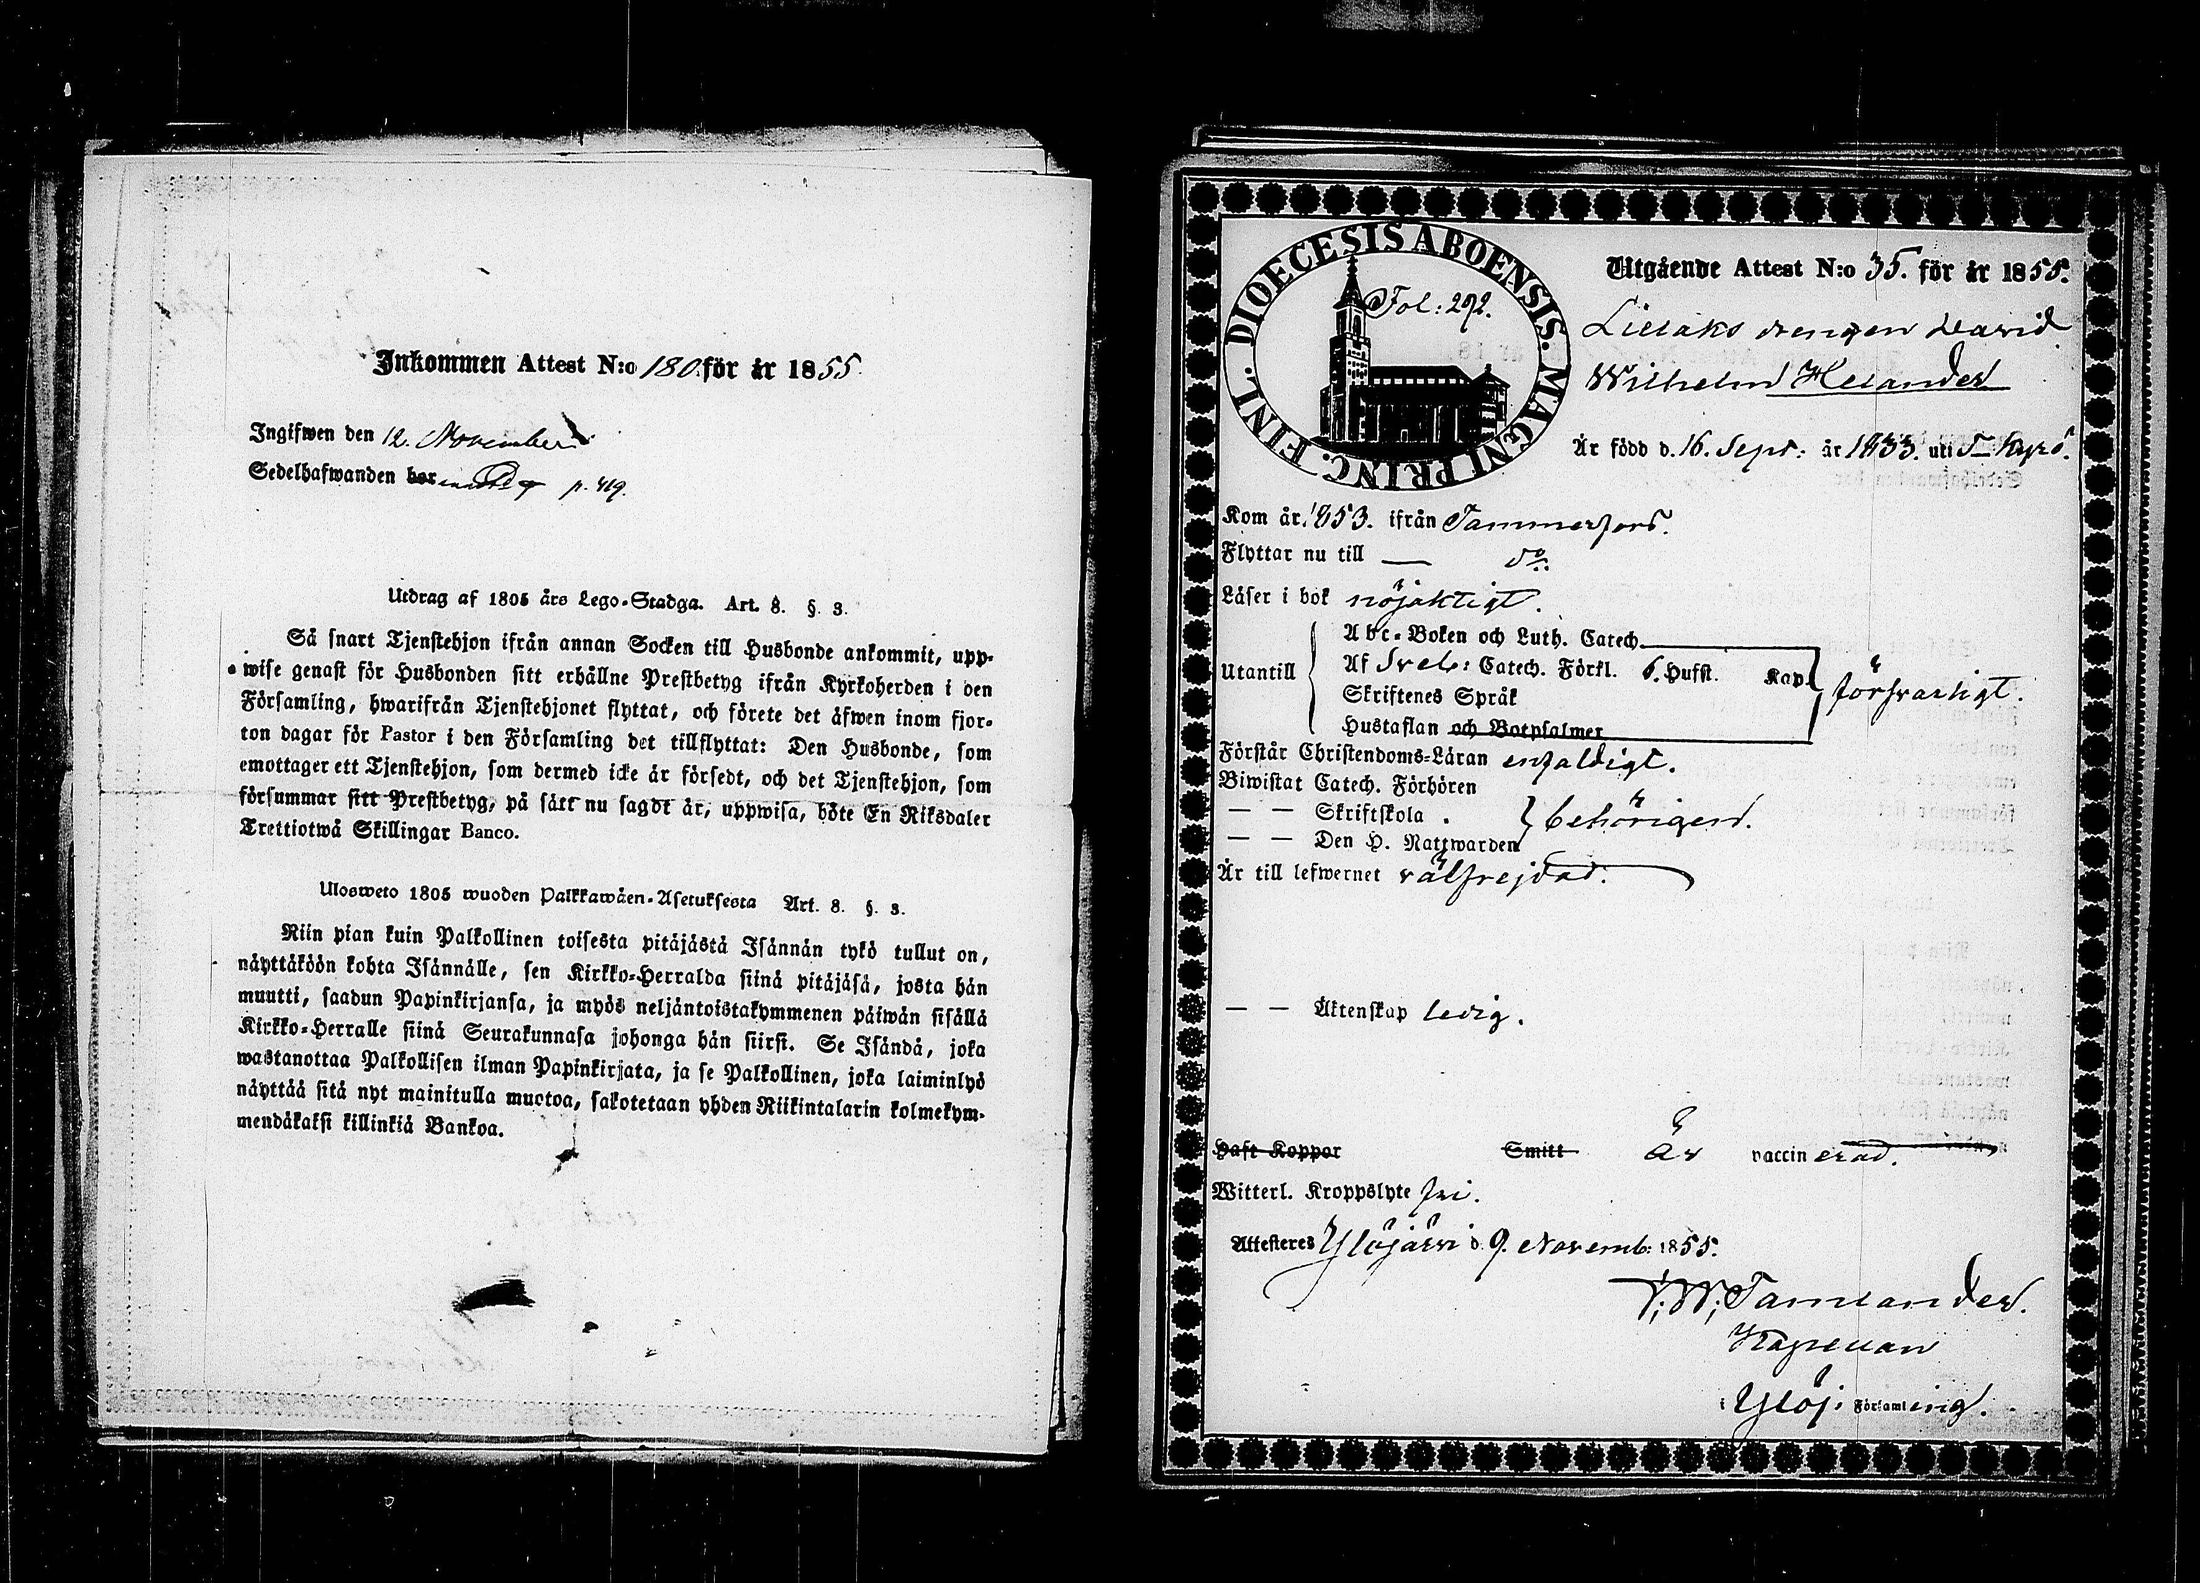 Inkommen Attest N:o 180. för år 1855.
Ingifwen den 12. November
Sedelhafwanden bor p. 419.
Utdrag af 1805 års Lego-Stadga. Art. 8. §. 3.
Så snart Tjenstehjon ifrån annan Socken till Husbonde ankommit, upp-
wise genast för Husbonden sitt erhållne Prestbetyg ifrån Kyrkoherden i den
Församling, hwarifrån Tjenstehjonet flyttat, och förete det äfwen inom fjor-
ton dagar för Pastor i den Församling det tillflyttat: Den Husbonde, som
emottager ett Tjenstehjon, som dermed icke är försedt, och det Tjenstehjon, som
försummar sitt Prestbetyg, på sätt nu sagdt är, uppwisa, böte En Riksdaler
Trettiotwå Skillingar Banco.
Ulosweto 1805 wuoden Palkkawäen-Asetuksesta Art. 8. §. 3.
Niin pian kuin Palkollinen toisesta pitäjästä Isännän tykö tullut on,
näyttäköön kohta Isännälle, sen Kirkko-Herralda siinä pitäjäsä, josta hän
muutti, saadun Papinkirjansa, ja myös neljäntoistakymmenen päiwän sisällä
Kirkko-Herralle siinä Seurakunnasa johonga hän siirsi. Se Isändä, joka
wastanottaa Palkollisen ilman Papinkirjata, ja se Palkollinen, joka laiminlyö
näyttää sitä nyt mainitulla muotoa, sakotetaan yhden Riikintalarin kolmekym-
mendäkaksi killinkiä Bankoa.
DIOECESIS ABOENSIS. MAGNI PRINC. FINL.
Fol: 292.
Utgående Attest N:o 35. för år 1855.
Lielaks drengen David
Wilhelm Helander
Är född d. 16. Sept: år 1833. uti T- Kyrö.
Kom år 1853. ifrån Tammerfors.
Flyttar nu till — do.
Läser i bok nöjaktigt.
Utantill
Abc-Boken och Luth. Catech.
Af Sveb: Catech. Förkl. 6. Hufst. Kap.
försvarligt.
Skriftenes Språk
Hustaflan och Botpsalmer
Förstår Christendoms-Läran enfaldigt.
Biwistat Catech. Förhören
— — Skriftskola behörigen.
— — Den H. Nattwarden
Är till lefwernet välfrejdad.
— — Äktenskap ledig.
Haft Koppor Smitt är vaccinerad.
Witterl. Kroppslyte fri.
Attesteres Ylöjärvi d. 9. Novemb: 1855.
Tamlander.
Kapellan
i Ylöj: Församling.